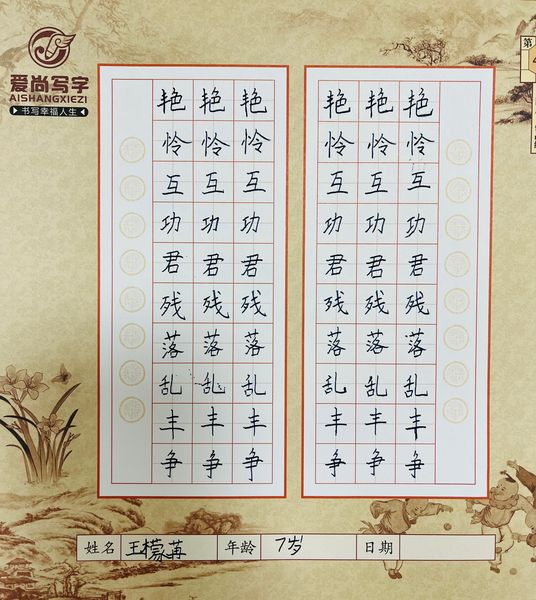 爱尚写字
AISHANGXIEZI
书写幸福人生
第
艳 艳 艳 艳 艳 艳
怜 怜 怜 怜 怜 怜
互 互 互 互 互 互
功 功 功 功 功 功
君 君 君 君 君 君
残 残 残 残 残 残
落 落 落 落 落 落
乱 乱 乱 乱 乱 乱
丰 丰 丰 丰 丰 丰
争 争 争 争 争 争
姓名 王檬苒 年龄 7岁 日期